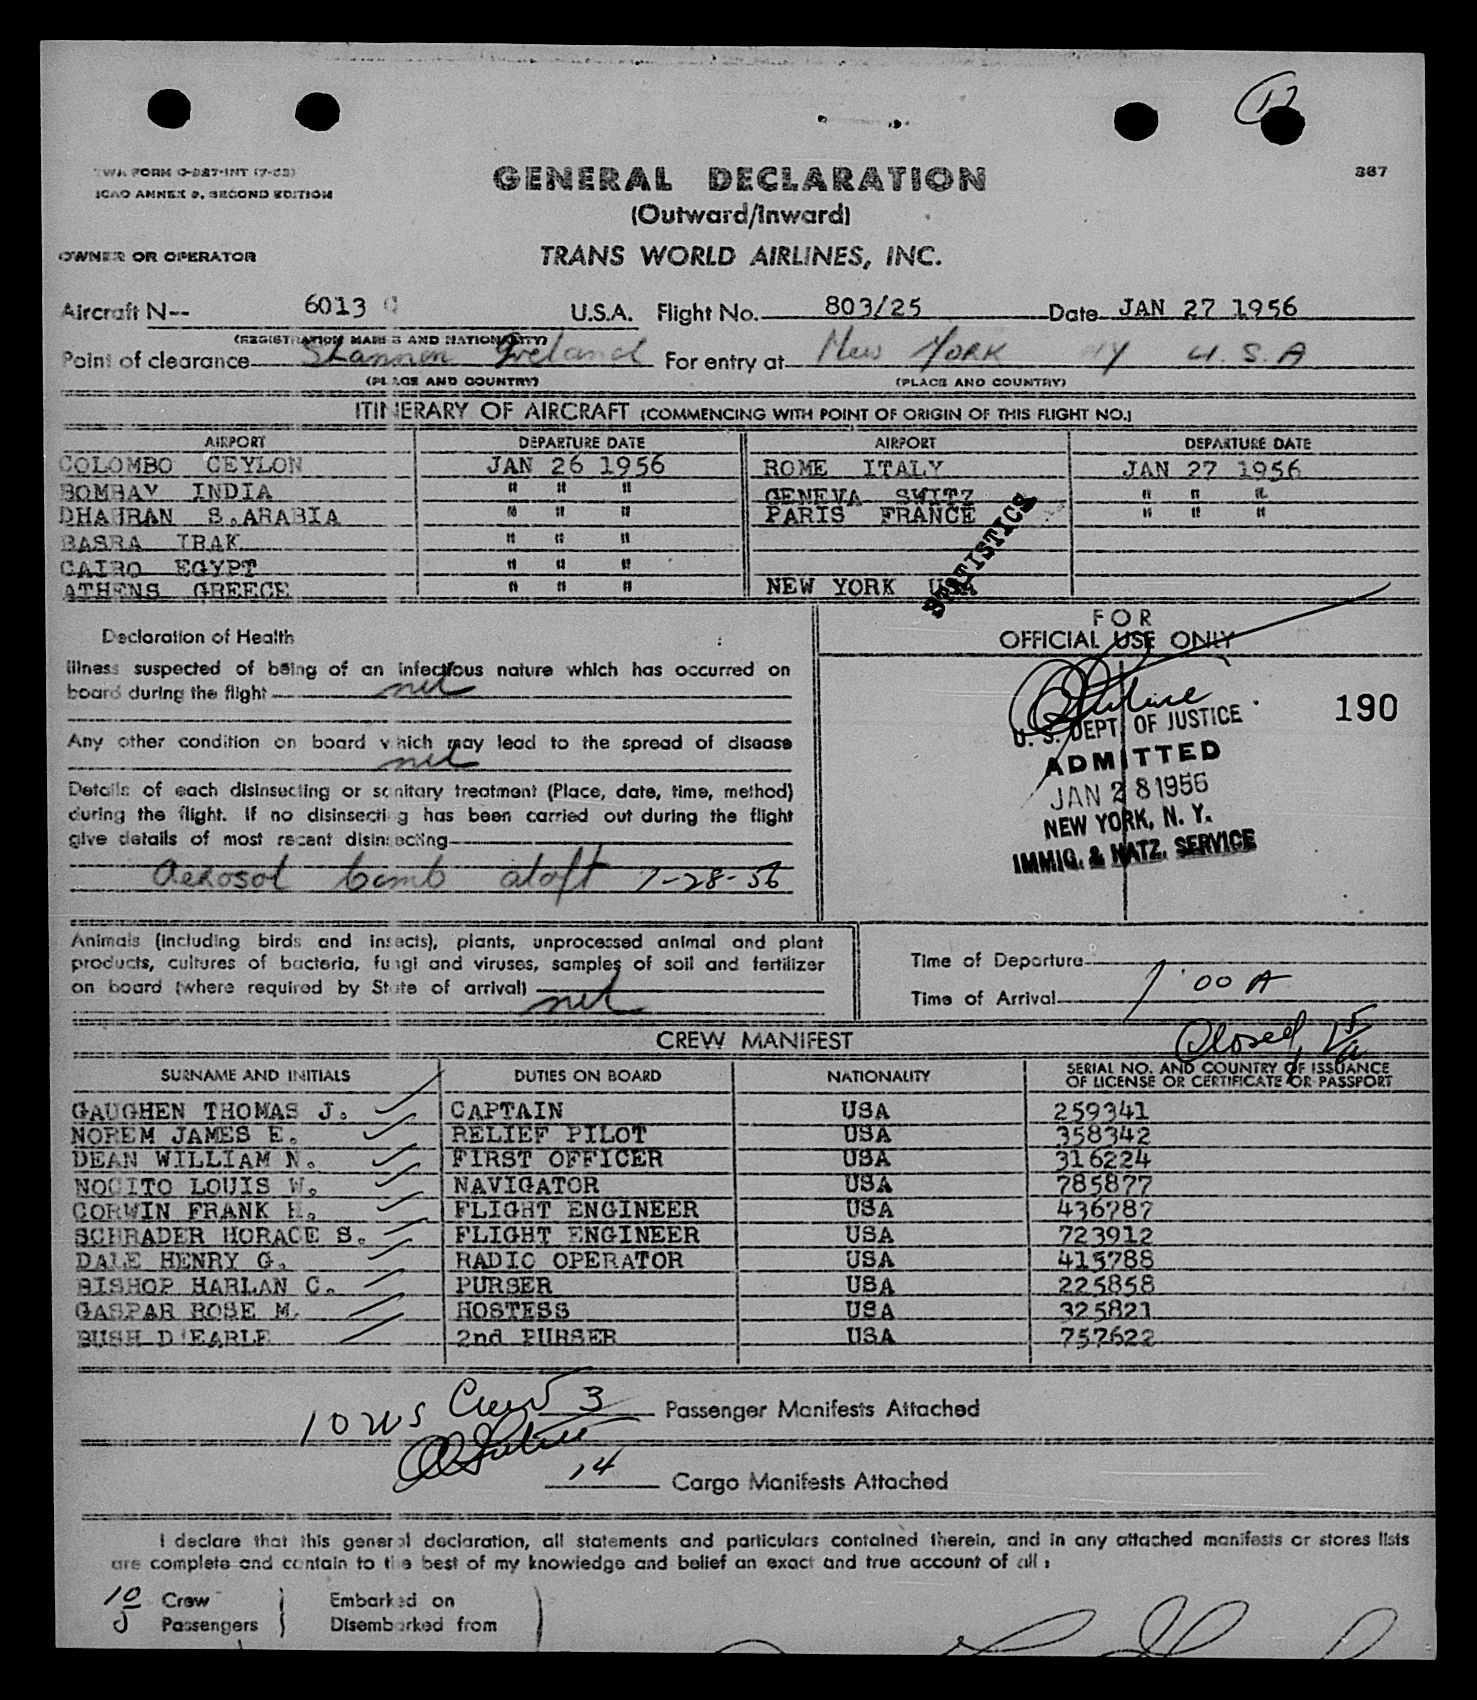 12
TWA FORM O-227-INT (7-53)
ICAO ANNEX 9, SECOND EDITION
GENERAL DECLARATION
367
(Outward/Inward)
OWNER OR OPERATOR
TRANS WORLD AIRLINES, INC.
Aircraft N-- 6013 C U.S.A. Flight No. 803/25 Date JAN 27 1956
(REGISTRATION MARKS AND NATIONALITY)
Point of clearance Shannon Ireland For entry at New York NY U.S.A
(PLACE AND COUNTRY) (PLACE AND COUNTRY)
ITINERARY OF AIRCRAFT (COMMENCING WITH POINT OF ORIGIN OF THIS FLIGHT NO.)
AIRPORT DEPARTURE DATE AIRPORT DEPARTURE DATE
COLOMBO CEYLON JAN 26 1956 ROME ITALY JAN 27 1956
BOMBAY INDIA " " " GENEVA SWITZ " " "
DHAHRAN S.ARABIA " " " PARIS FRANCE " " "
BASRA IRAK " " "
CAIRO EGYPT " " "
ATHENS GREECE " " " NEW YORK USA
STATISTICS
FOR
OFFICIAL USE ONLY
Declaration of Health
Illness suspected of being of an infectious nature which has occurred on
board during the flight nil
Any other condition on board which may lead to the spread of disease
nil
Details of each disinsecting or sanitary treatment (Place, date, time, method)
during the flight. If no disinsecting has been carried out during the flight
give details of most recent disinsecting
Aerosol bomb aloft 1-28-56
190
U. S. DEPT. OF JUSTICE
ADMITTED
JAN 28 1956
NEW YORK, N. Y.
IMMIG. & NATZ. SERVICE
Animals (including birds and insects), plants, unprocessed animal and plant
products, cultures of bacteria, fungi and viruses, samples of soil and fertilizer
on board (where required by State of arrival) nil
Time of Departure
Time of Arrival 7:00 A
CREW MANIFEST
Closed
SURNAME AND INITIALS DUTIES ON BOARD NATIONALITY SERIAL NO. AND COUNTRY OF ISSUANCE
OF LICENSE OR CERTIFICATE OR PASSPORT
GAUGHEN THOMAS J. CAPTAIN USA 259341
NOREM JAMES E. RELIEF PILOT USA 358342
DEAN WILLIAM N. FIRST OFFICER USA 316224
NOCITO LOUIS W. NAVIGATOR USA 785877
CORWIN FRANK H. FLIGHT ENGINEER USA 436787
SCHRADER HORACE S. FLIGHT ENGINEER USA 723912
DALE HENRY G. RADIO OPERATOR USA 415788
BISHOP HARLAN C. PURSER USA 225858
GASPAR ROSE M. HOSTESS USA 325821
BUSH D'EARLE 2nd PURSER USA 757622
10 US Crew 3 Passenger Manifests Attached
14 Cargo Manifests Attached
I declare that this general declaration, all statements and particulars contained therein, and in any attached manifests or stores lists
are complete and contain to the best of my knowledge and belief an exact and true account of all:
10 Crew Embarked on
Passengers Disembarked from